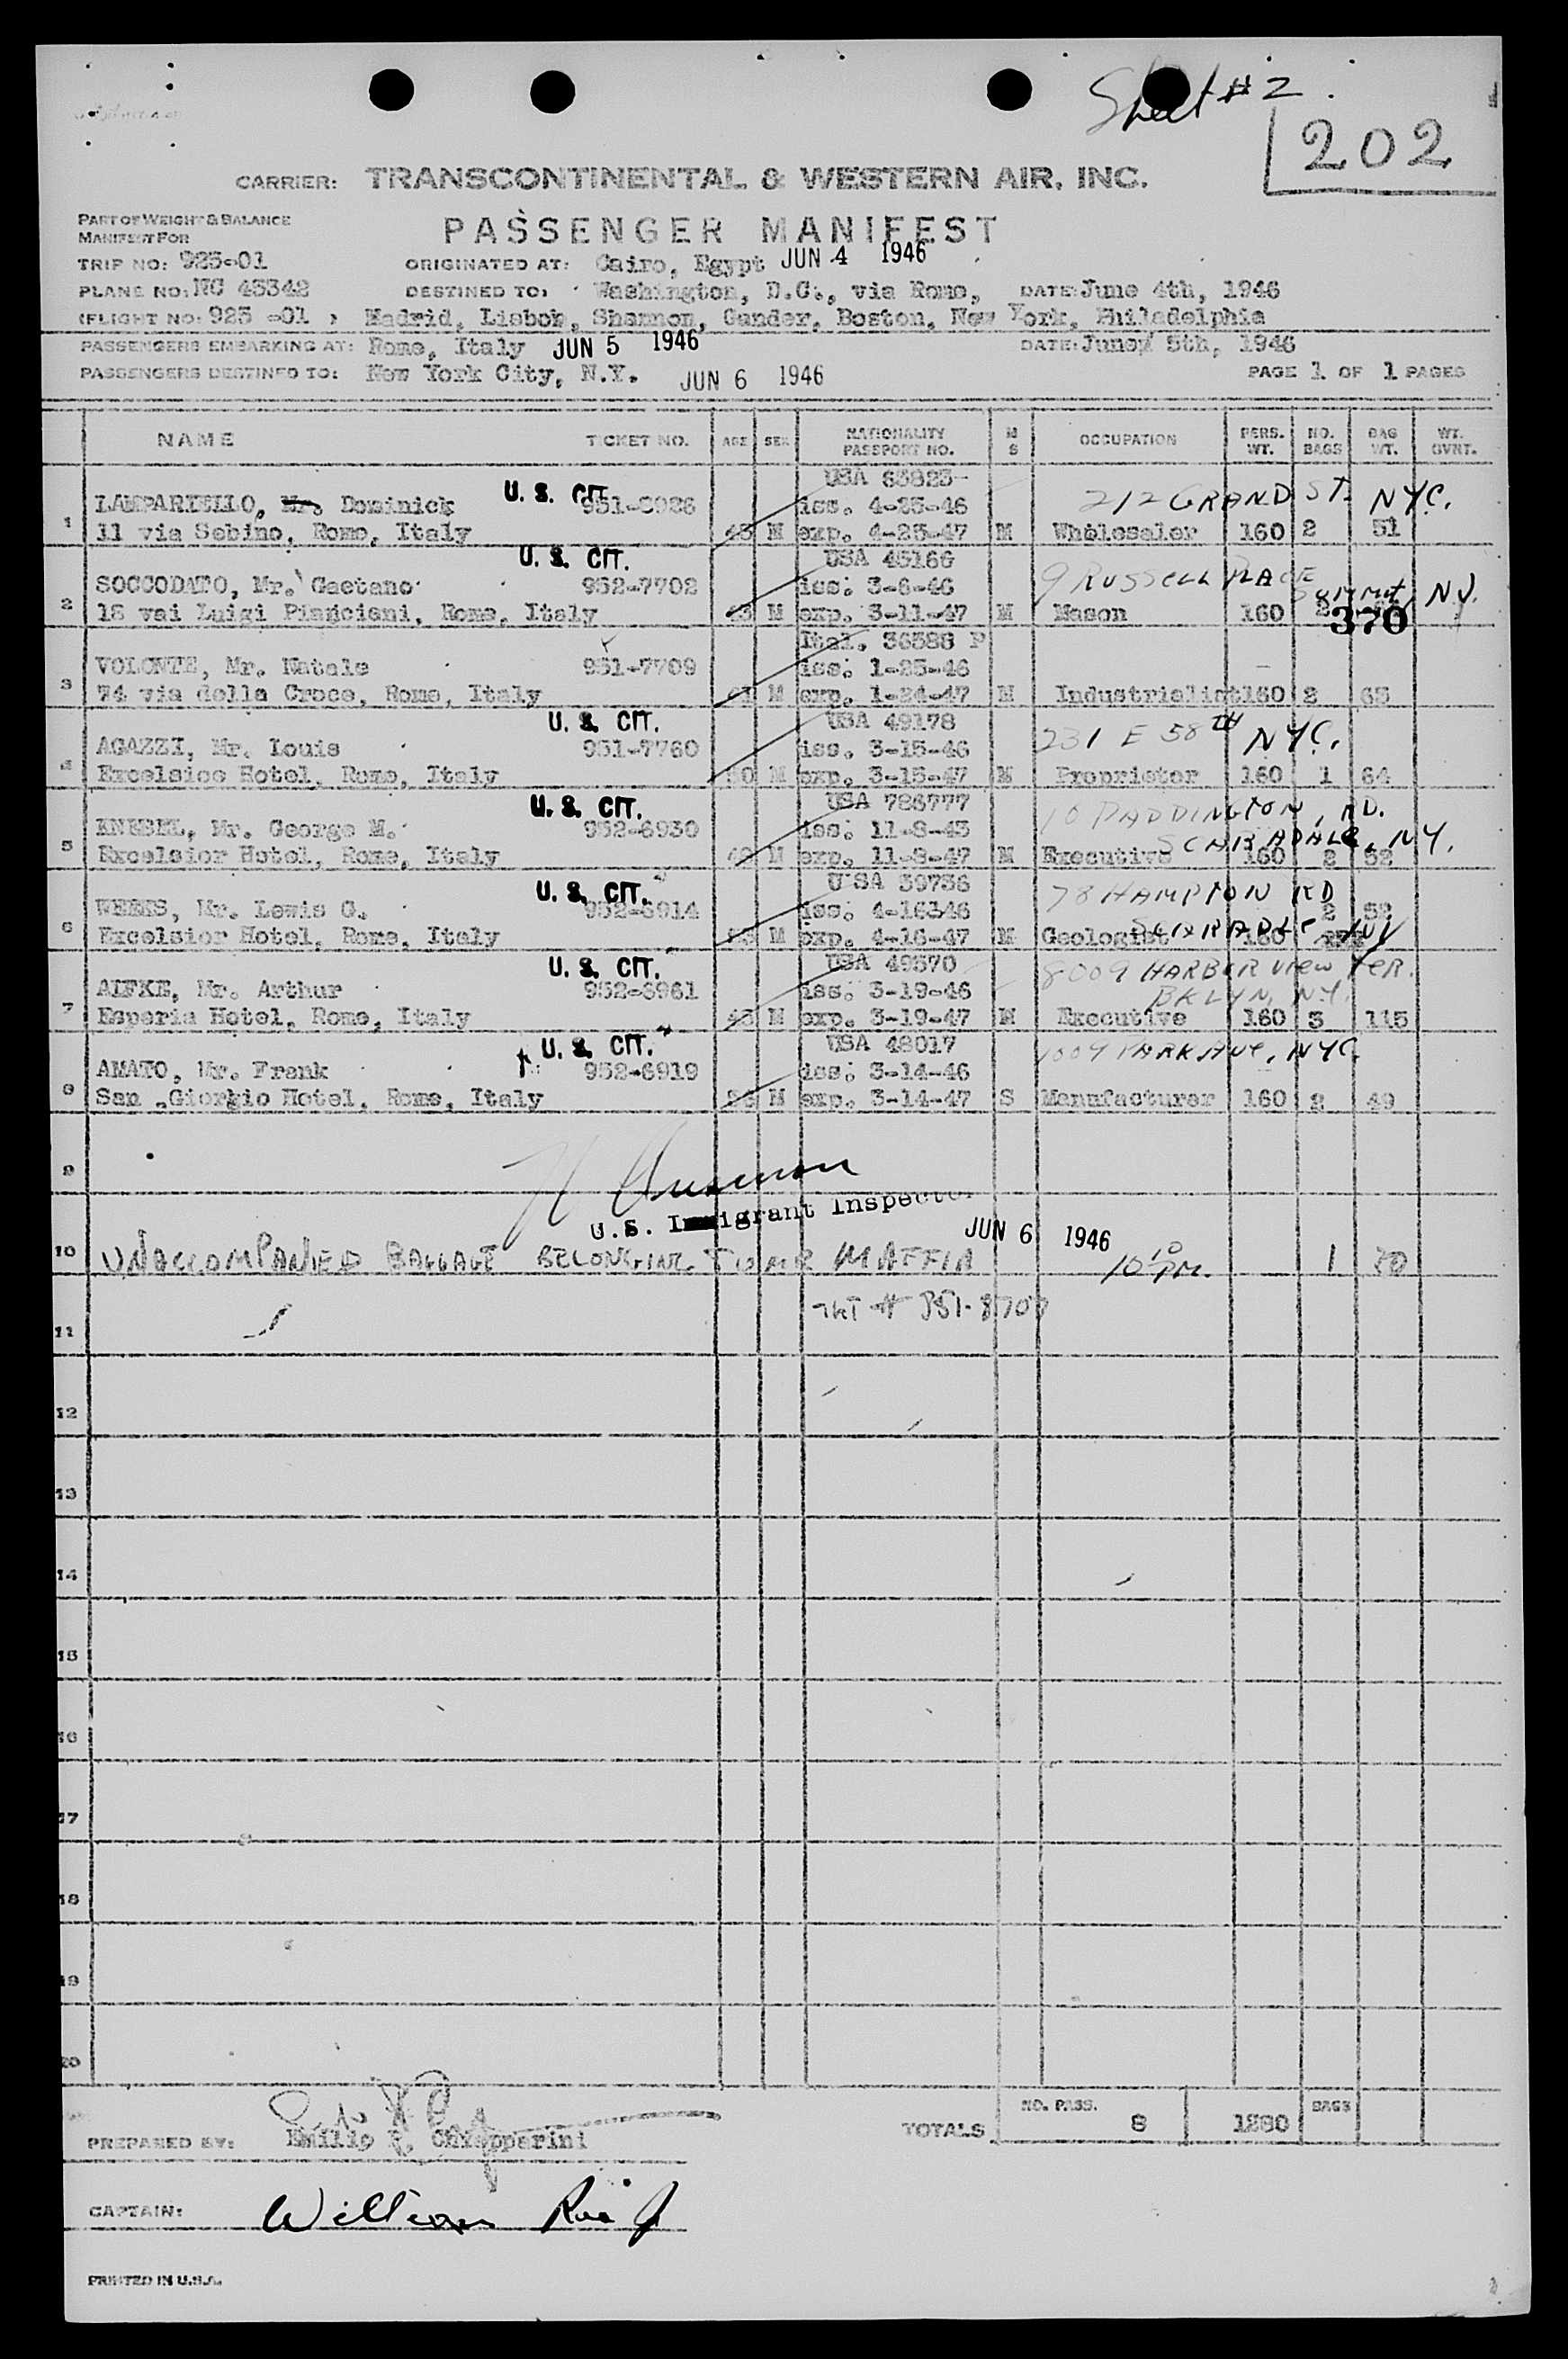 Sheet #2.
202
CARRIER: TRANSCONTINENTAL & WESTERN AIR, INC.
PART OF WEIGHT & BALANCE
MANIFEST FOR
PASSENGER MANIFEST
TRIP NO: 925-01 ORIGINATED AT: Cairo, Egypt JUN 4 1946
PLANE NO: NC 45342 DESTINED TO: Washington, D.C., via Rome, DATE: June 4th, 1946
(FLIGHT NO: 925 -01 ) Madrid, Lisbon, Shannon, Gander, Boston, New York, Philadelphia
PASSENGERS EMBARKING AT: Rome, Italy JUN 5 1946 DATE: June 5th, 1946
PASSENGERS DESTINED TO: New York City, N.Y. JUN 6 1946 PAGE 1 OF 1 PAGES
NAME TICKET NO. AGE SEX NATIONALITY PASSPORT NO. M S OCCUPATION PERS. WT. NO. BAGS BAG WT. WT. OVRT.
U. S. CIT. USA 85823
LAMPARIELLO, Mr. Dominick 951-8926 iss. 4-23-46 212 GRAND ST. NYC.
1 11 via Sebino, Rome, Italy M exp. 4-23-47 M Wholesaler 160 2 51
U. S. CIT. USA 45166
SOCCODATO, Mr. Gaetano 952-7702 iss. 3-6-46 9 RUSSELL PLACE Summit, NJ.
2 18 vai Luigi Pianciani, Rome, Italy M exp. 3-11-47 M Mason 160 2 370
Ital. 36586 P
VOLONTE, Mr. Natale 951-7709 iss. 1-25-46
3 74 via della Croce, Rome, Italy M exp. 1-24-47 M Industrialist 160 2 65
U. S. CIT. USA 49178
AGAZZI, Mr. Louis 951-7760 iss. 3-15-46 231 E 58TH NYC.
4 Excelsior Hotel, Rome, Italy M exp. 3-15-47 M Proprietor 160 1 64
U. S. CIT. USA 786777 10 PADDINGTON, RD.
KNEBEL, Mr. George M. 952-6930 iss. 11-8-45 SCARSDALE, NY.
5 Excelsior Hotel, Rome, Italy M exp. 11-8-47 M Executive 160 2 52
U. S. CIT. USA 39736 78 HAMPTON RD
WEEKS, Mr. Lewis G. 952-6914 iss. 4-16-46 2 52
6 Excelsior Hotel, Rome, Italy M exp. 4-16-47 M Geologist SCARSDALE NY 160
U. S. CIT. USA 49570 8009 HARBOR VIEW TER.
ALFKE, Mr. Arthur 952-6961 iss. 3-19-46 BKLYN, N.Y.
7 Esperia Hotel, Rome, Italy M exp. 3-19-47 M Executive 160 3 115
U. S. CIT. USA 48017 1009 PARK AVE, NYC.
AMATO, Mr. Frank 952-6919 iss. 3-14-46
8 San Giorgio Hotel, Rome, Italy M exp. 3-14-47 S Manufacturer 160 2 49
9
U. S. Immigrant Inspector
JUN 6 1946
10 UNACCOMPANIED BAGGAGE BELONGING TO MR MAFFIA 10 10 PM. 1 70
11 TKT # 951-8707
12
13
14
15
16
17
18
19
20
TOTALS NO. PASS. 8 1280 BAGS
PREPARED BY: Emilio Chiapparini
CAPTAIN: William
PRINTED IN U.S.A.